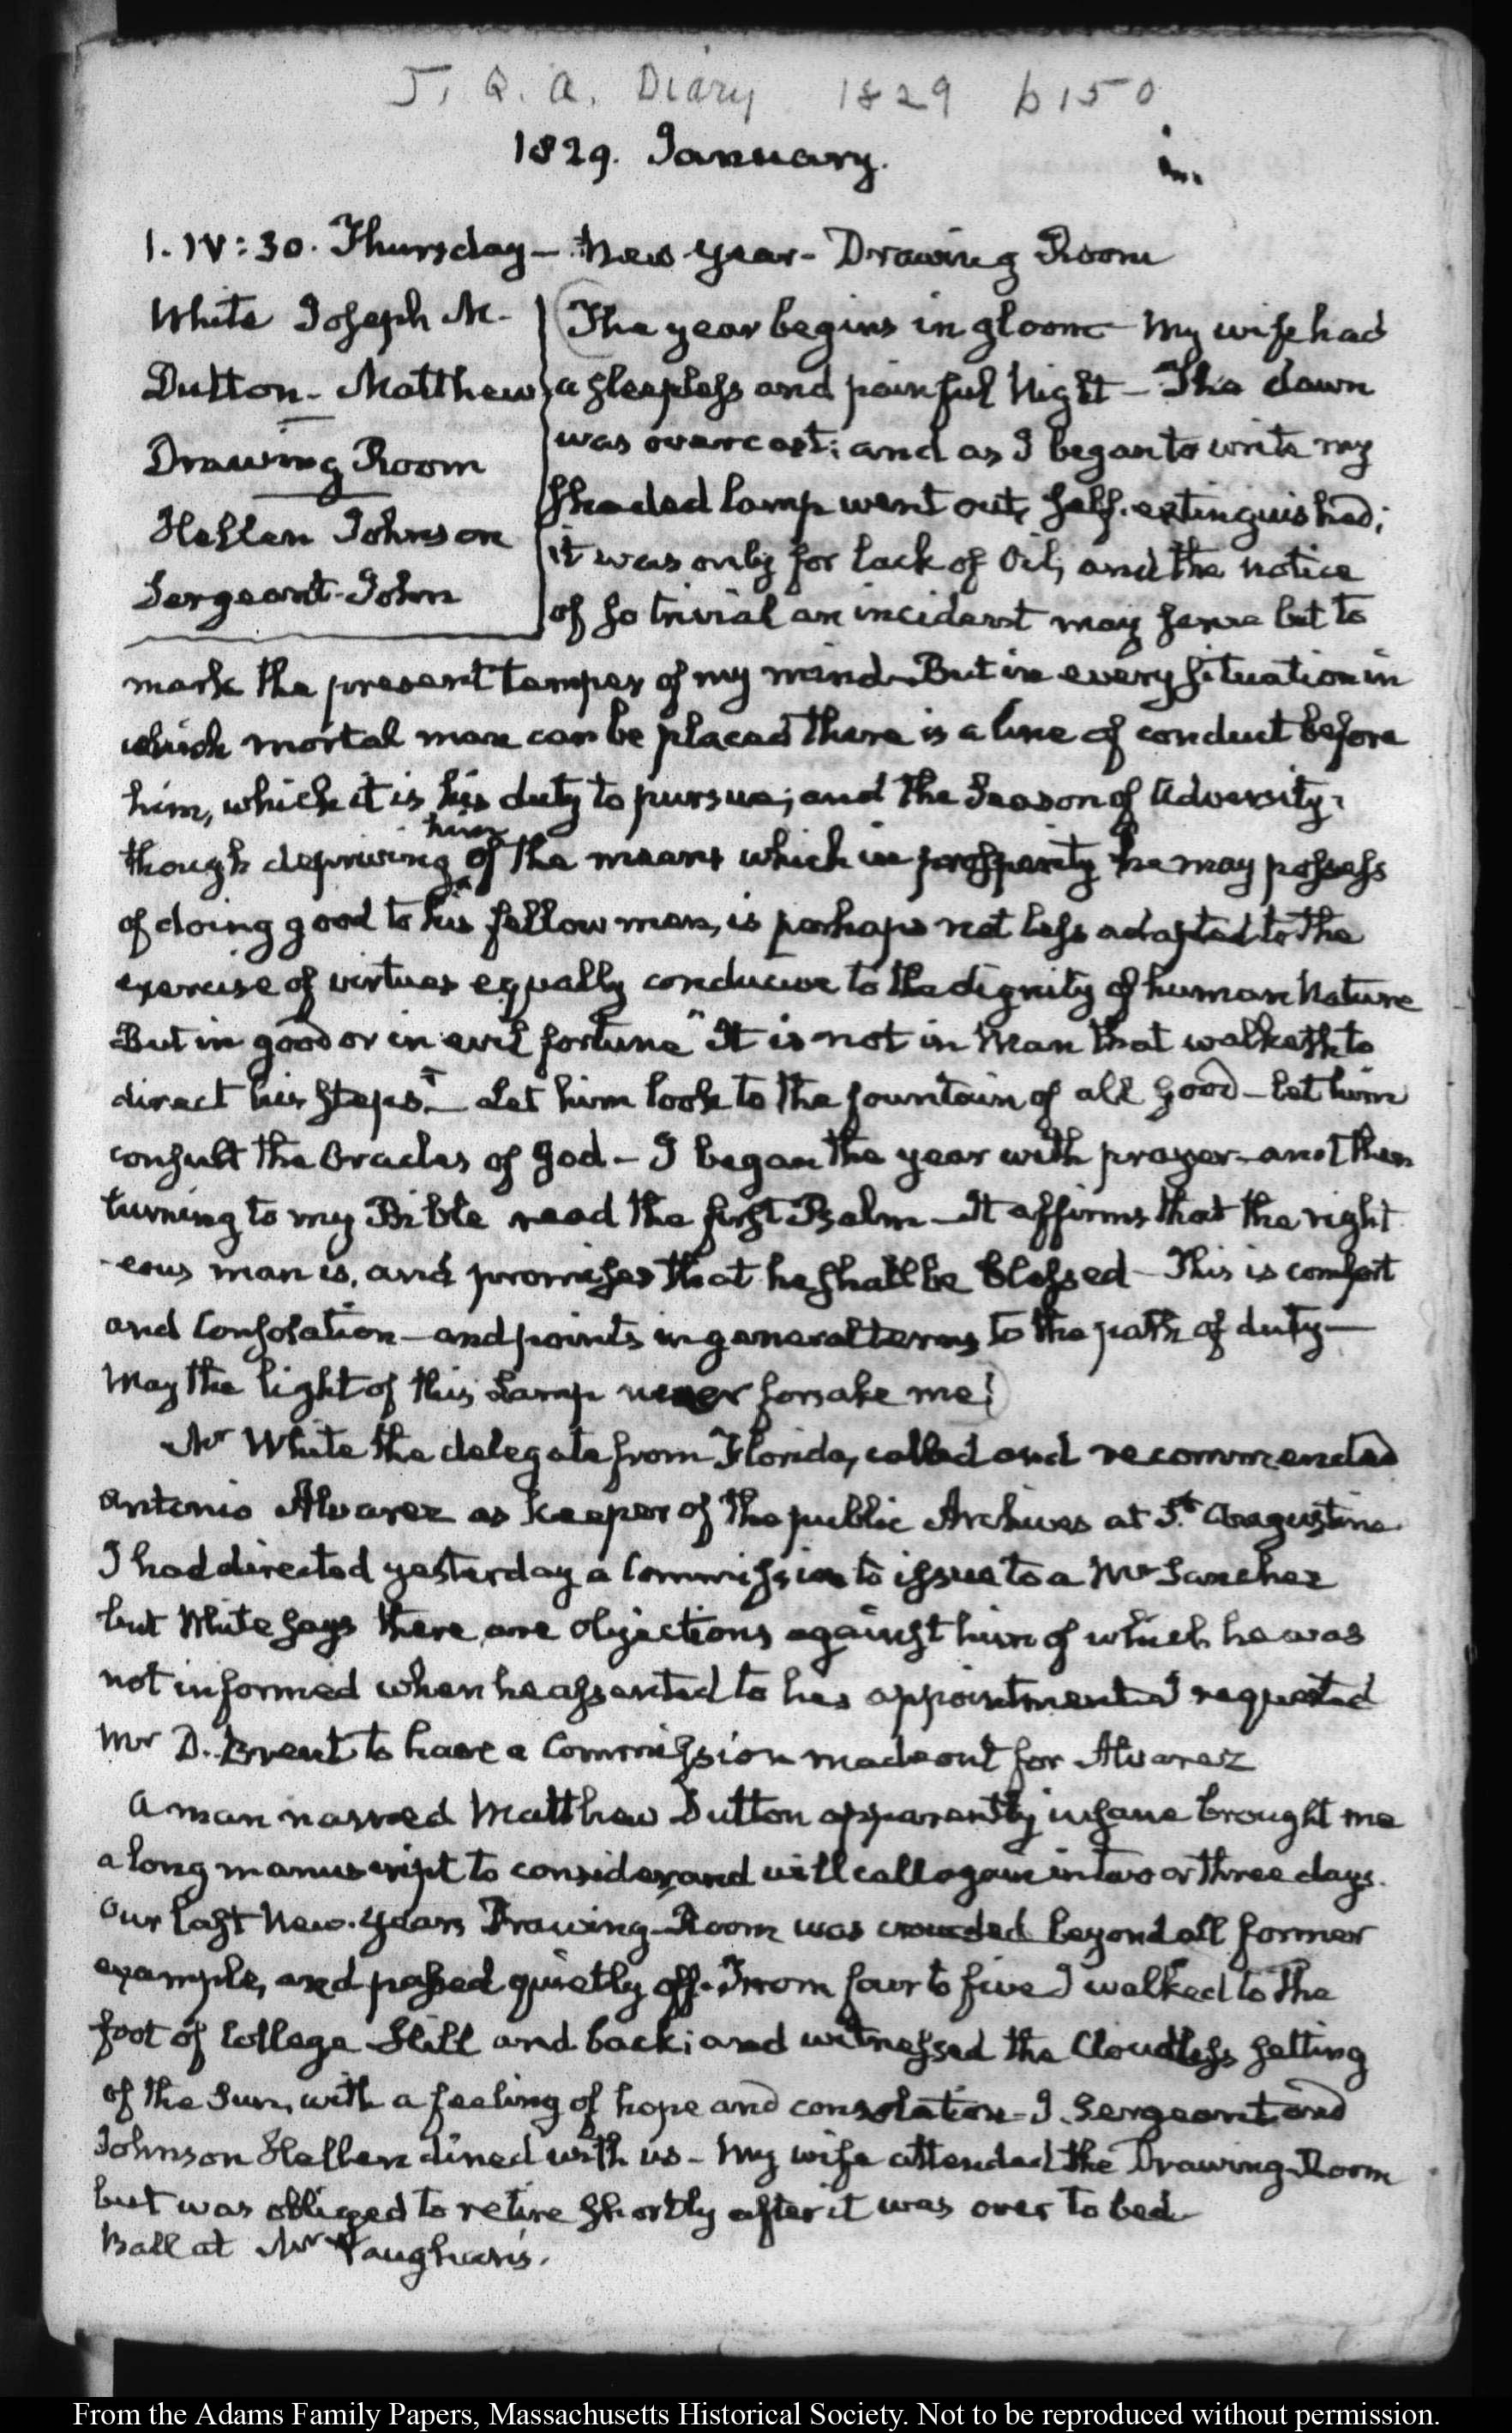 J. Q. A. Diary 1829 p 150
1829. January.
1. IV:30. Thursday – New Year – Drawing Room
White Joseph M.
Dutton – Matthew
Drawing Room
Hellen Johnson
Sergeant – John
The year begins in gloom – My wife had
a sleepless and painful Night – The dawn
was overcast; and as I began to write my
shaded lamp went out, self-extinguished;
it was only for lack of Oil; and the notice
of so trivial an incident may serve but to
mark the present temper of my mind – But in every situation in
which mortal man can be placed there is a line of conduct before
him, which it is his duty to pursue; and the Season of Adversity,
though depriving ^him of the means which in prosperity he may possess
of doing good to his fellow men, is perhaps not less adapted to the
exercise of virtues equally conducive to the dignity of human Nature
But in good or in evil fortune "It is not in Man that walketh to
direct his steps." – Let him look to the fountain of all good – let him
consult the Oracles of God – I began the year with prayer – and then
turning to my Bible read the first Psalm – It affirms that the right
-eous man is, and promises that he shall be Blessed – This is comfort
and Consolation – and points in general terms to the path of duty –
May the light of this Lamp never forsake me!
Mr White the delegate from Florida, called and recommended
Antonio Alvarez as keeper of the public Archives at St. Augustine
I had directed yesterday a Commission to issue to a Mr Sanchez
but White says there are objections against him of which he was
not informed when he assented to his appointment. I requested
Mr D. Brent to have a Commission made out for Alvarez
A man named Matthew Dutton apparently insane brought me
a long manuscript to consider, and will call again in two or three days.
Our last New-Years Drawing-Room was crowded beyond all former
example, and passed quietly off. From four to five I walked to the
foot of College Hill and back; and witnessed the Cloudless setting
of the Sun, with a feeling of hope and consolation – J. Sergeant and
Johnson Hellen dined with us – My wife attended the Drawing-Room
but was obliged to retire shortly after it was over to bed –
Ball at Mr Vaughan's.
From the Adams Family Papers, Massachusetts Historical Society. Not to be reproduced without permission.